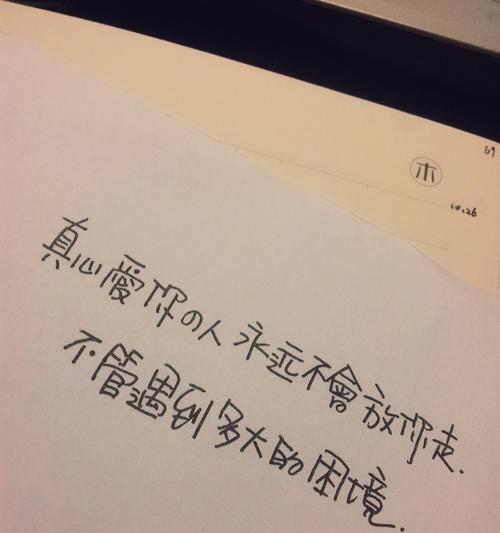 69
木
10.26
真心愛你の人 永远不會放你走.
不管遇到多大的困境.